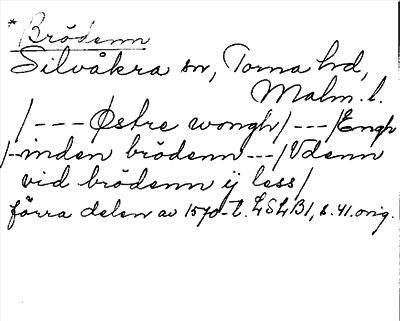 *Brödenn
Silvåkra sn, Torna hd,
Malm. l.
/---Østre wongh/---/Engh
/--inden brödenn---/Vdenn
vid brödenn ij less/
förra delen av 1570-t. LSLB1, s. 41. orig.